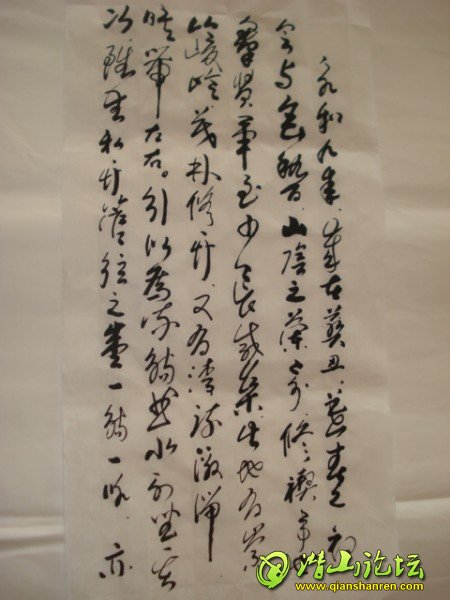 永和九年、歲在癸丑、暮春之初
会于會稽山陰之蘭亭修禊事
群賢畢至少長咸集此地有崇
山峻嶺茂林修竹又有清流激湍
映帶左右。引以為流觴曲水列坐其
次雖無絲竹管弦之盛一觴一詠亦
潜山论坛
www.qianshanren.com